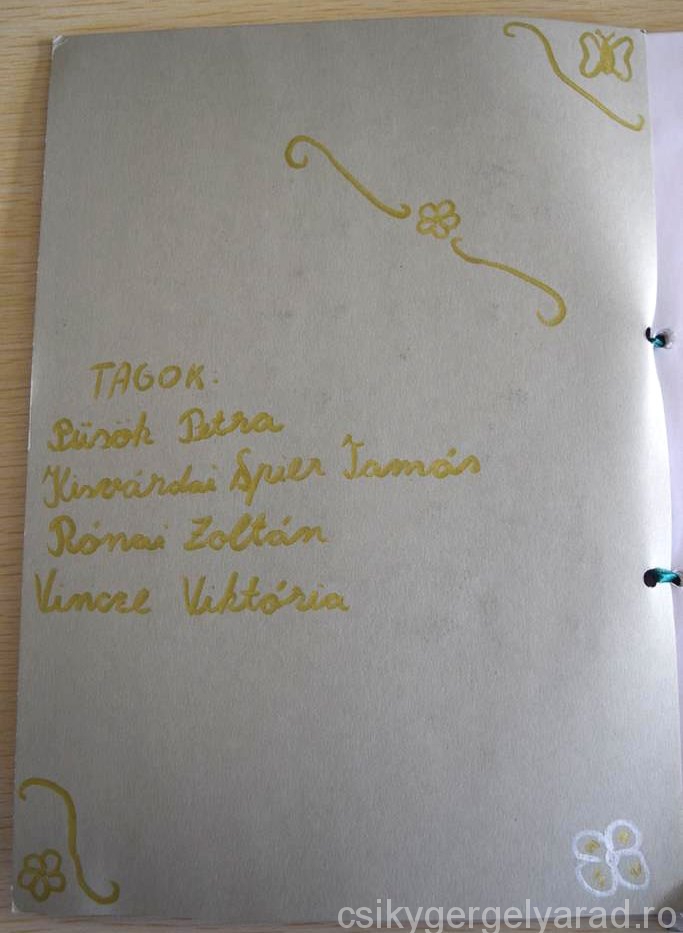 TAGOK.
Püsök Petra
Kisvárdai Spier Tamás
Rónai Zoltán
Vincze Viktória
csikygergelyarad.ro